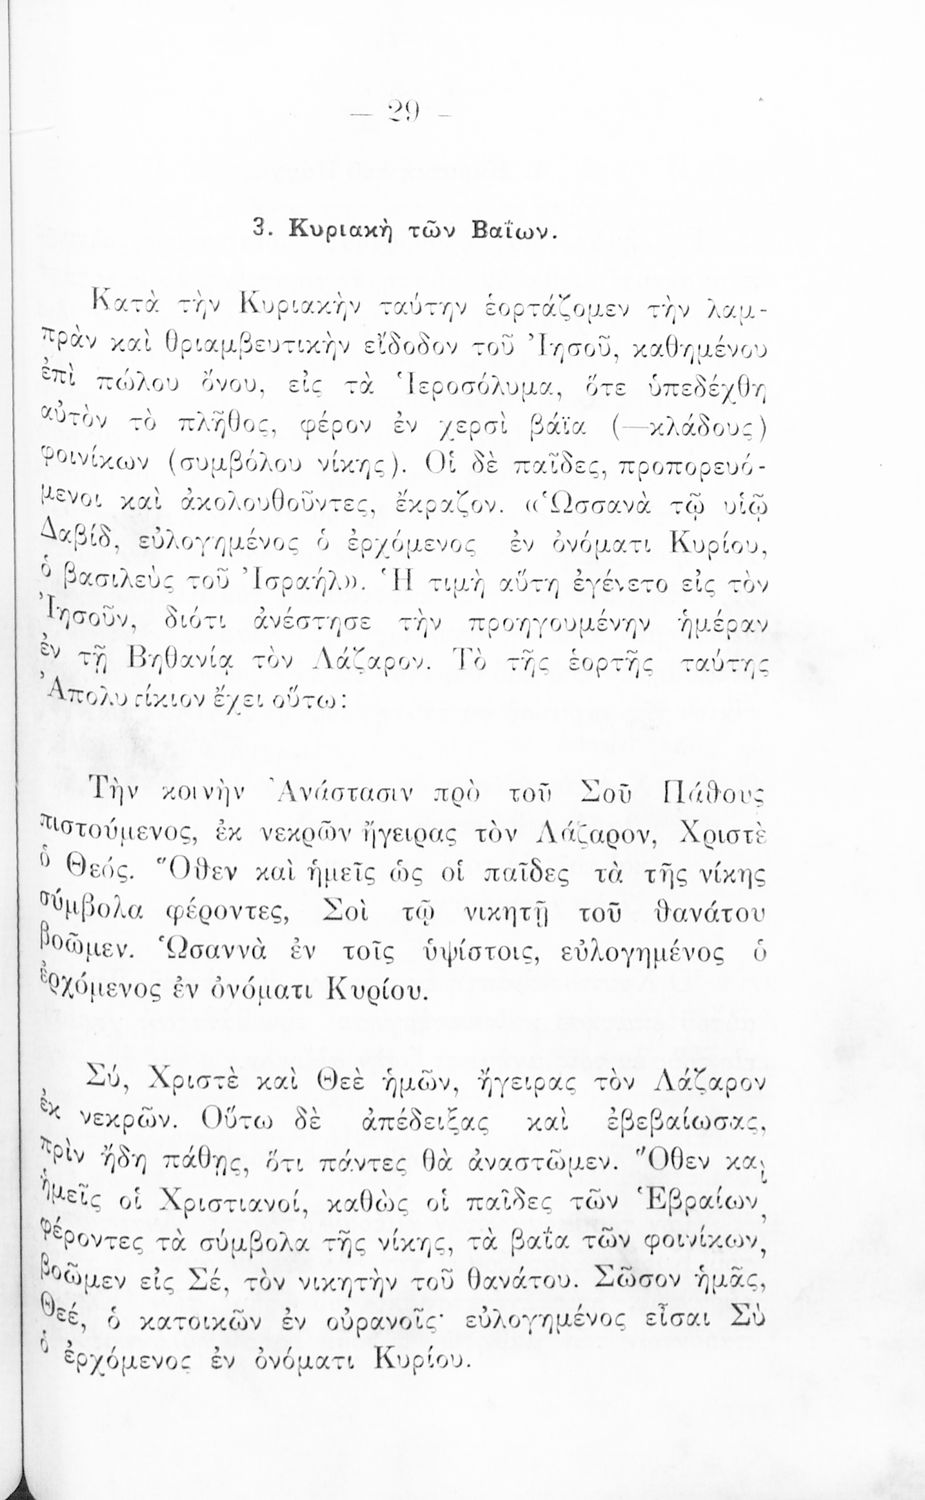 — 29 —
3. Κυριακὴ τῶν Βαΐων.
Κατὰ τὴν Κυριακὴν ταύτην ἑορτάζομεν τὴν λαμ-
πρὰν καὶ θριαμβευτικὴν εἴδοδον τοῦ Ἰησοῦ, καθημένου
ἐπὶ πώλου ὄνου, εἰς τὰ Ἱεροσόλυμα, ὅτε ὑπεδέχθη
αὐτὸν τὸ πλῆθος, φέρον ἐν χερσὶ βάϊα (—κλάδους)
φοινίκων (συμβόλου νίκης). Οἱ δὲ παῖδες, προπορευό-
μενοι καὶ ἀκολουθοῦντες, ἔκραζον. «Ὡσσανὰ τῷ υἱῷ
Δαβίδ, εὐλογημένος ὁ ἐρχόμενος ἐν ὀνόματι Κυρίου,
ὁ βασιλεὺς τοῦ Ἰσραήλ». Ἡ τιμὴ αὕτη ἐγένετο εἰς τὸν
Ἰησοῦν, διότι ἀνέστησε τὴν προηγουμένην ἡμέραν
ἐν τῇ Βηθανίᾳ τὸν Λάζαρον. Τὸ τῆς ἑορτῆς ταύτης
Ἀπολυτίκιον ἔχει οὕτω:
Τὴν κοινὴν Ἀνάστασιν πρὸ τοῦ Σοῦ Πάθους
πιστούμενος, ἐκ νεκρῶν ἤγειρας τὸν Λάζαρον, Χριστὲ
ὁ Θεός. Ὅθεν καὶ ἡμεῖς ὡς οἱ παῖδες τὰ τῆς νίκης
σύμβολα φέροντες, Σοὶ τῷ νικητῇ τοῦ θανάτου
βοῶμεν. Ὡσαννὰ ἐν τοῖς ὑψίστοις, εὐλογημένος ὁ
ἐρχόμενος ἐν ὀνόματι Κυρίου.
Σύ, Χριστὲ καὶ Θεὲ ἡμῶν, ἤγειρας τὸν Λάζαρον
ἐκ νεκρῶν. Οὕτω δὲ ἀπέδειξας καὶ ἐβεβαίωσας,
πρὶν ἤδη πάθῃς, ὅτι πάντες θὰ ἀναστῶμεν. Ὅθεν καὶ
ἡμεῖς οἱ Χριστιανοί, καθὼς οἱ παῖδες τῶν Ἑβραίων,
φέροντες τὰ σύμβολα τῆς νίκης, τὰ βαΐα τῶν φοινίκων,
βοῶμεν εἰς Σέ, τὸν νικητὴν τοῦ θανάτου. Σῶσον ἡμᾶς,
Θεέ, ὁ κατοικῶν ἐν οὐρανοῖς· εὐλογημένος εἶσαι Σὺ
ὁ ἐρχόμενος ἐν ὀνόματι Κυρίου.